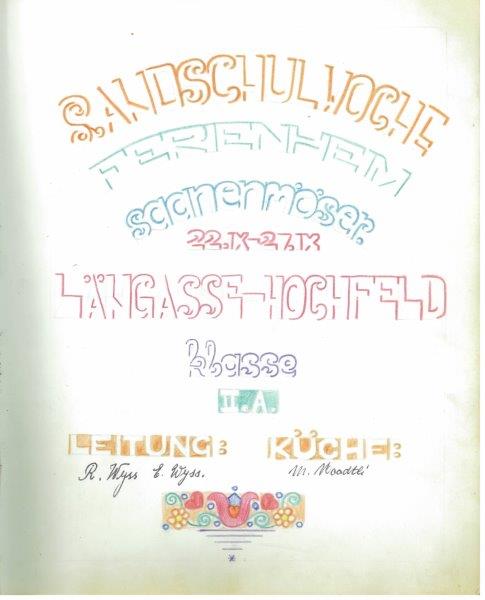 LANDSCHULWOCHE
FERIENHEIM
saanenmöser.
22.IX-27.IX
LÄNGASSE-HOCHFELD
klasse
II.A.
LEITUNG: KÜCHE:
R. Wyss E. Wyss. M.